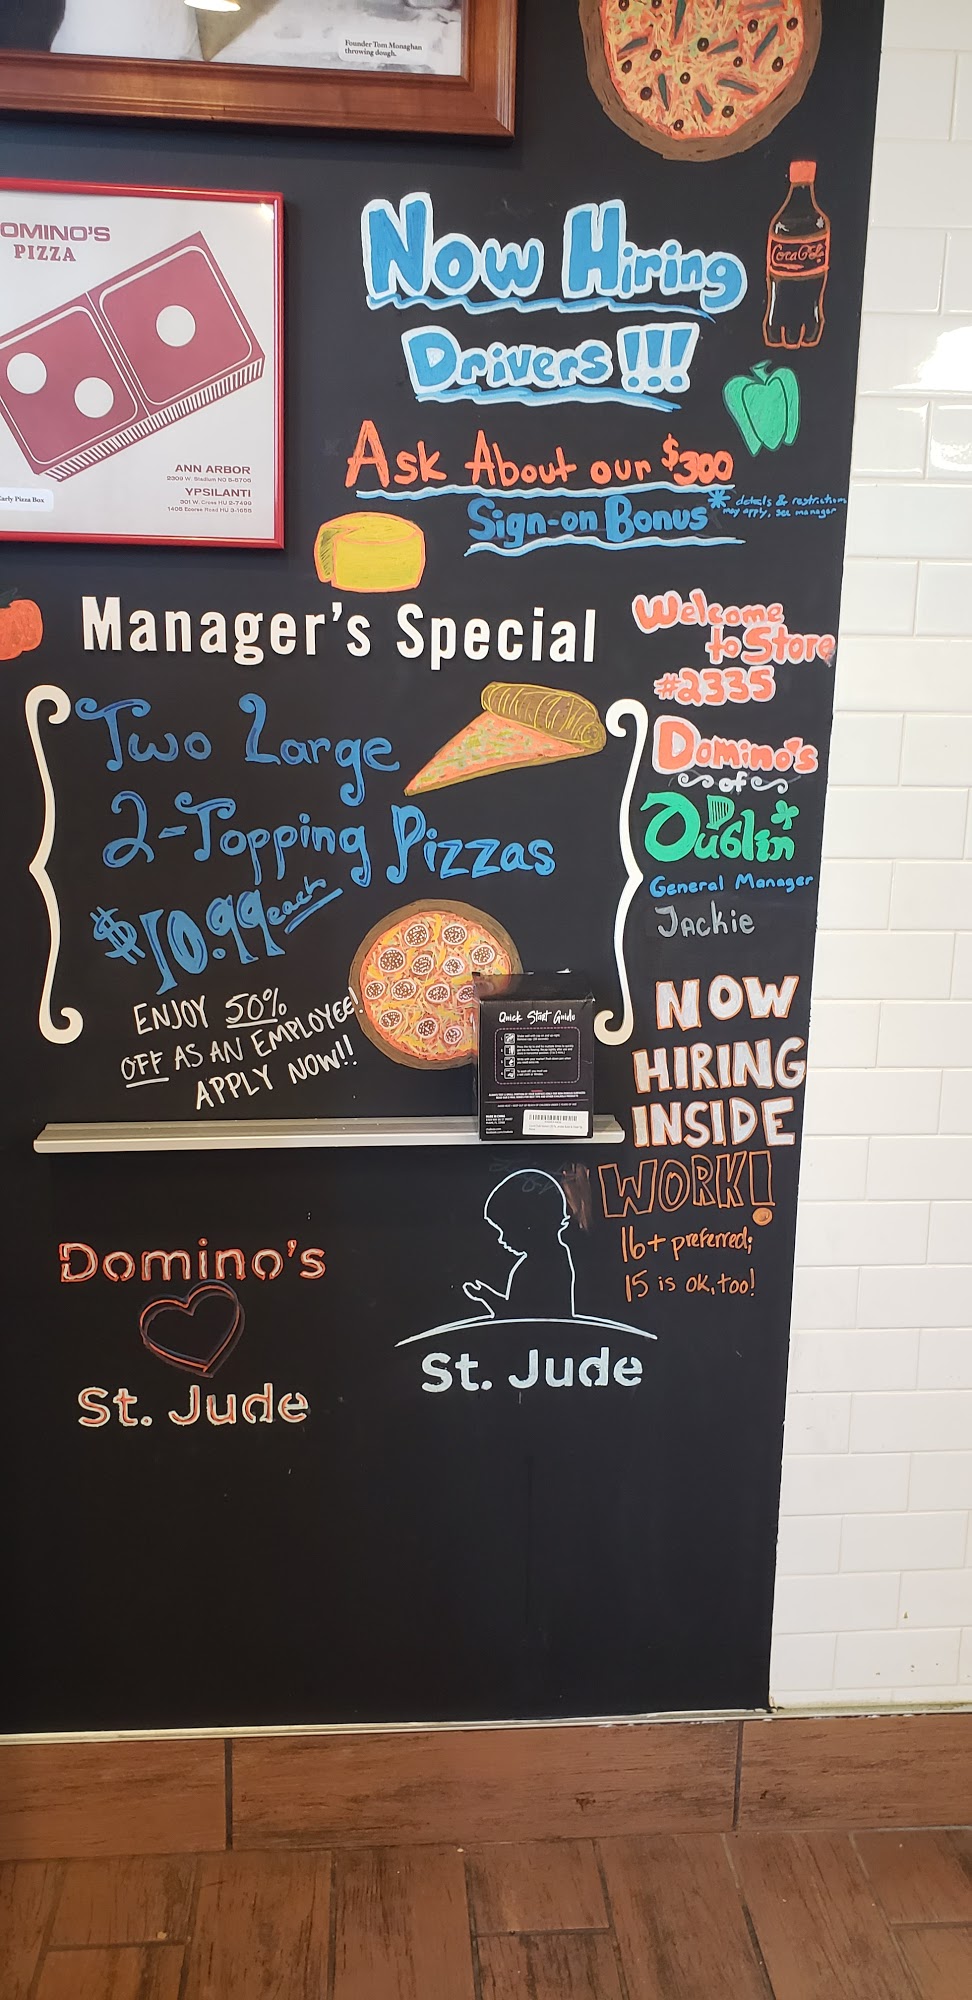 Founder Tom Monaghan
throwing dough.
OMINO'S
PIZZA
ANN ARBOR
2309 W. Stadium NO 5-8705
YPSILANTI
301 W. Cross HU 2-7499
1405 Ecorse Road HU 3-1655
Early Pizza Box
Now Hiring
Drivers!!!
Coca-Cola
Ask About our $300
Sign-on Bonus*
* details & restrictions
may apply, see manager
Manager's Special
Two Large
2-Topping Pizzas
$10.99 each
ENJOY 50%
OFF AS AN EMPLOYEE!
APPLY NOW!!
Quick Start Guide
Welcome
to Store
#2335
Domino's
of
Dublin
General Manager
Jackie
NOW
HIRING
INSIDE
WORK!
16+ preferred;
15 is ok, too!
Domino's
St. Jude
St. Jude